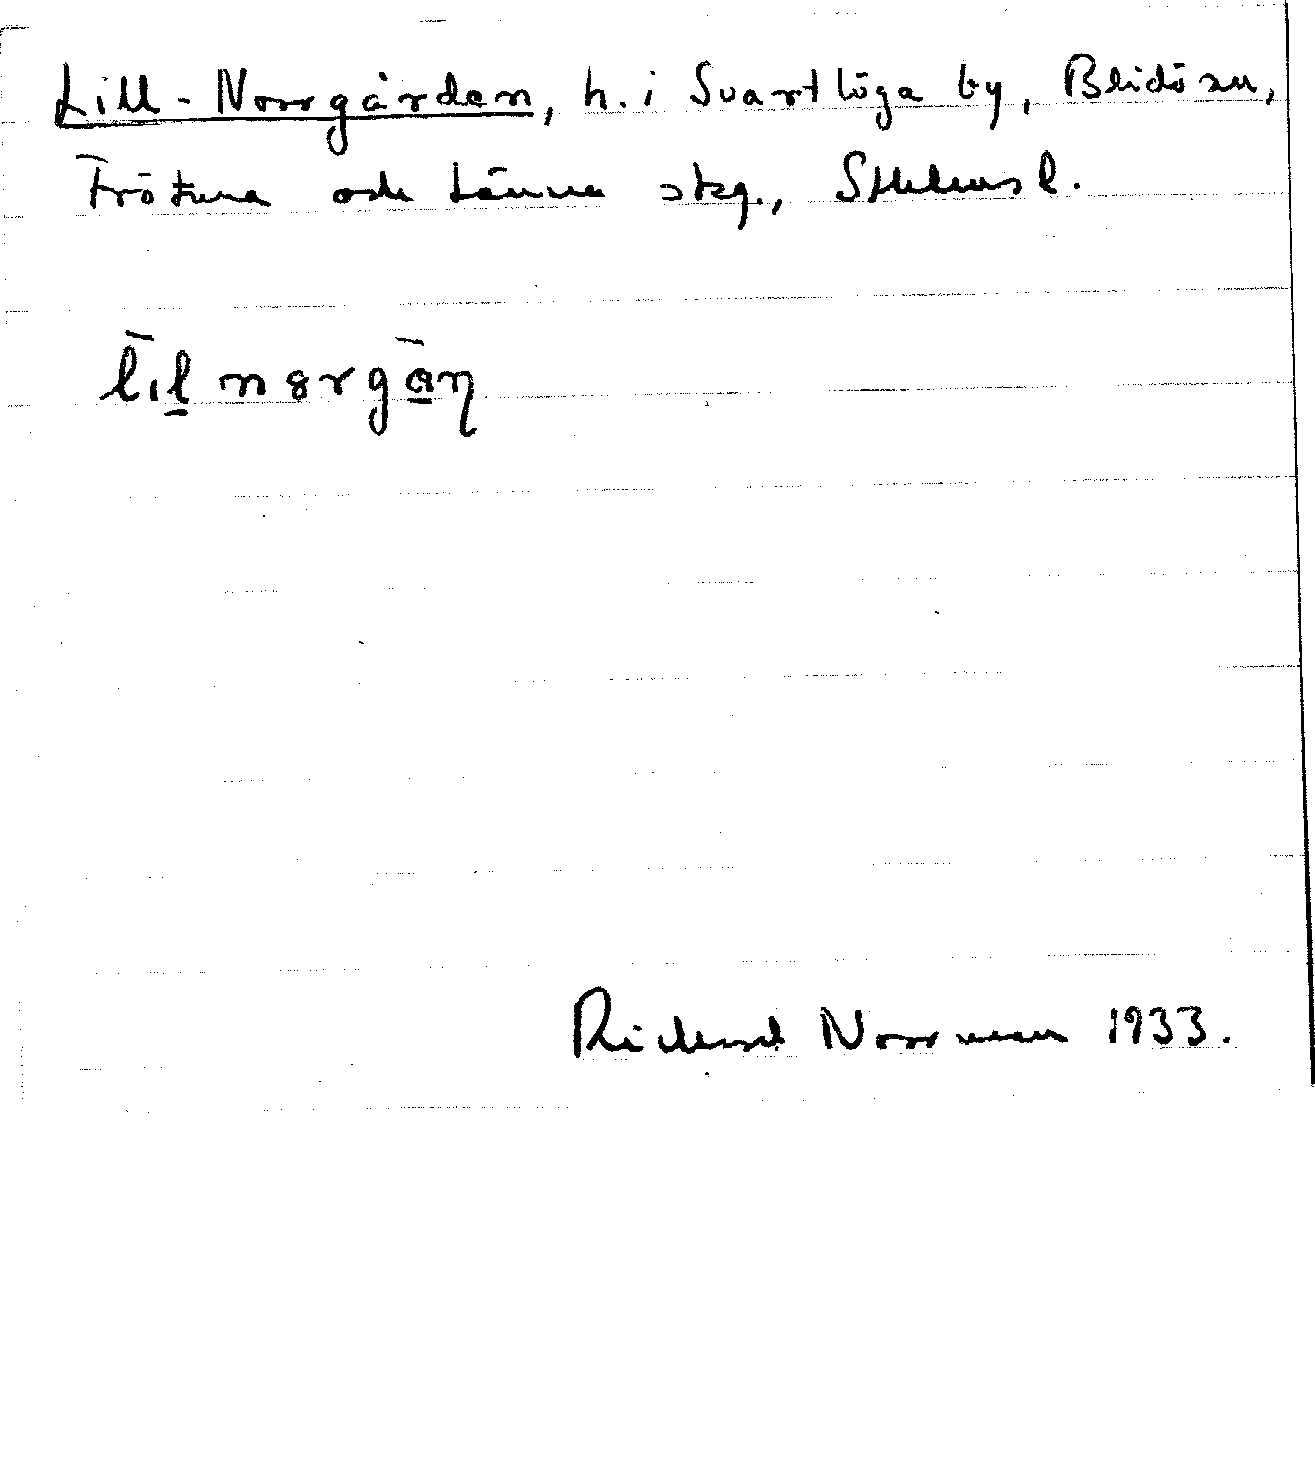 Lill-Norrgården, h. i Svartlöga by, Blidö sn,
Frötuna och Länna skg., Sthlms l.
Rickard Norrman 1933.